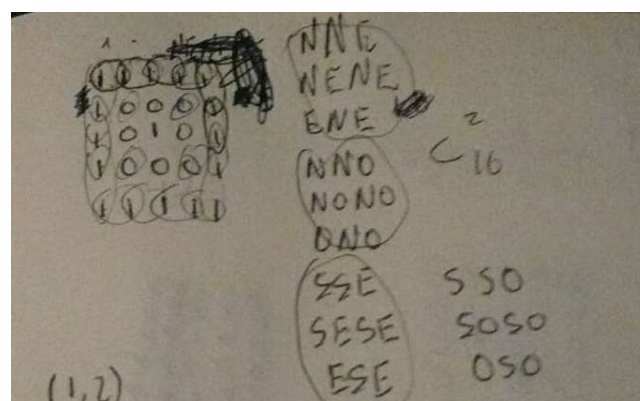 1 1 1 1 1
1 0 0 0 1
1 0 1 0 1
1 0 0 0 1
1 1 1 1 1
NNE
NENE
ENE
C 2 16
NNO
NONO
ONO
SSE SSO
SESE SOSO
ESE OSO
(1,2)